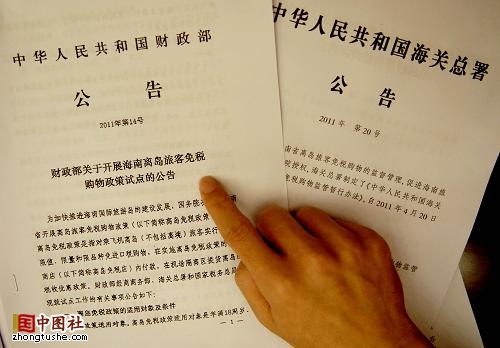 中华人民共和国财政部
公 告
2011年第14号
财政部关于开展海南离岛旅客免税
购物政策试点的公告
为加快推进海南国际旅游岛的建设发展，国务院
省开展离岛旅客免税购物政策（以下简称离岛免税政策
离岛免税政策是指对乘飞机离岛（不包括离境）旅客实行
限值、限量和限品种免进口税购物，在实施离岛免税政策的
商店（以下简称离岛免税店）内付款，在机场隔离区提货离岛
税收优惠政策。财政部经商商务部、海关总署和国家税务总局
现就试点工作的有关事项公告如下：
离岛免税政策的适用对象及条件
政策适用对象。离岛免税政策适用对象是年满18周岁、
— 1 —
中华人民共和国海关总署
公 告
2011年 第20号
南省离岛旅客免税购物的监督管理，促进海南旅
院授权，海关总署制定了《中华人民共和国海
免税购物监管暂行办法》，自2011年4月20
物监管
中图社
zhongtushe.com